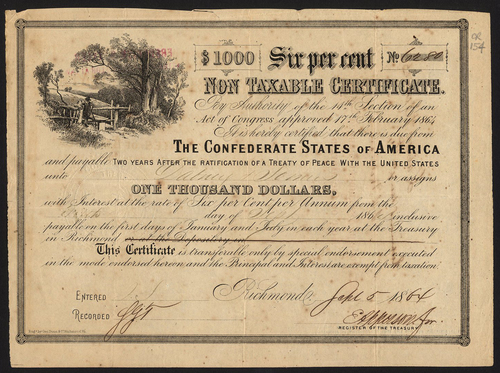 $1000 Six per cent No 6080
NON TAXABLE CERTIFICATE.
By Authority of the 14th Section of an
Act of Congress approved 17th February 1864
It is hereby certified that there is due from
THE CONFEDERATE STATES OF AMERICA
and payable TWO YEARS AFTER THE RATIFICATION OF A TREATY OF PEACE WITH THE UNITED STATES
unto or assigns
ONE THOUSAND DOLLARS,
with Interest at the rate of Six per Cent per Annum from the
day of 186 inclusive
payable on the first days of January and July in each year at the Treasury
in Richmond or at the Depository in
This Certificate is transferable only by special endorsement executed
in the mode endorsed hereon and the Principal and Interest are exempt from taxation.
Richmond, Sept 5 1864
ENTERED
RECORDED
REGISTER OF THE TREASURY